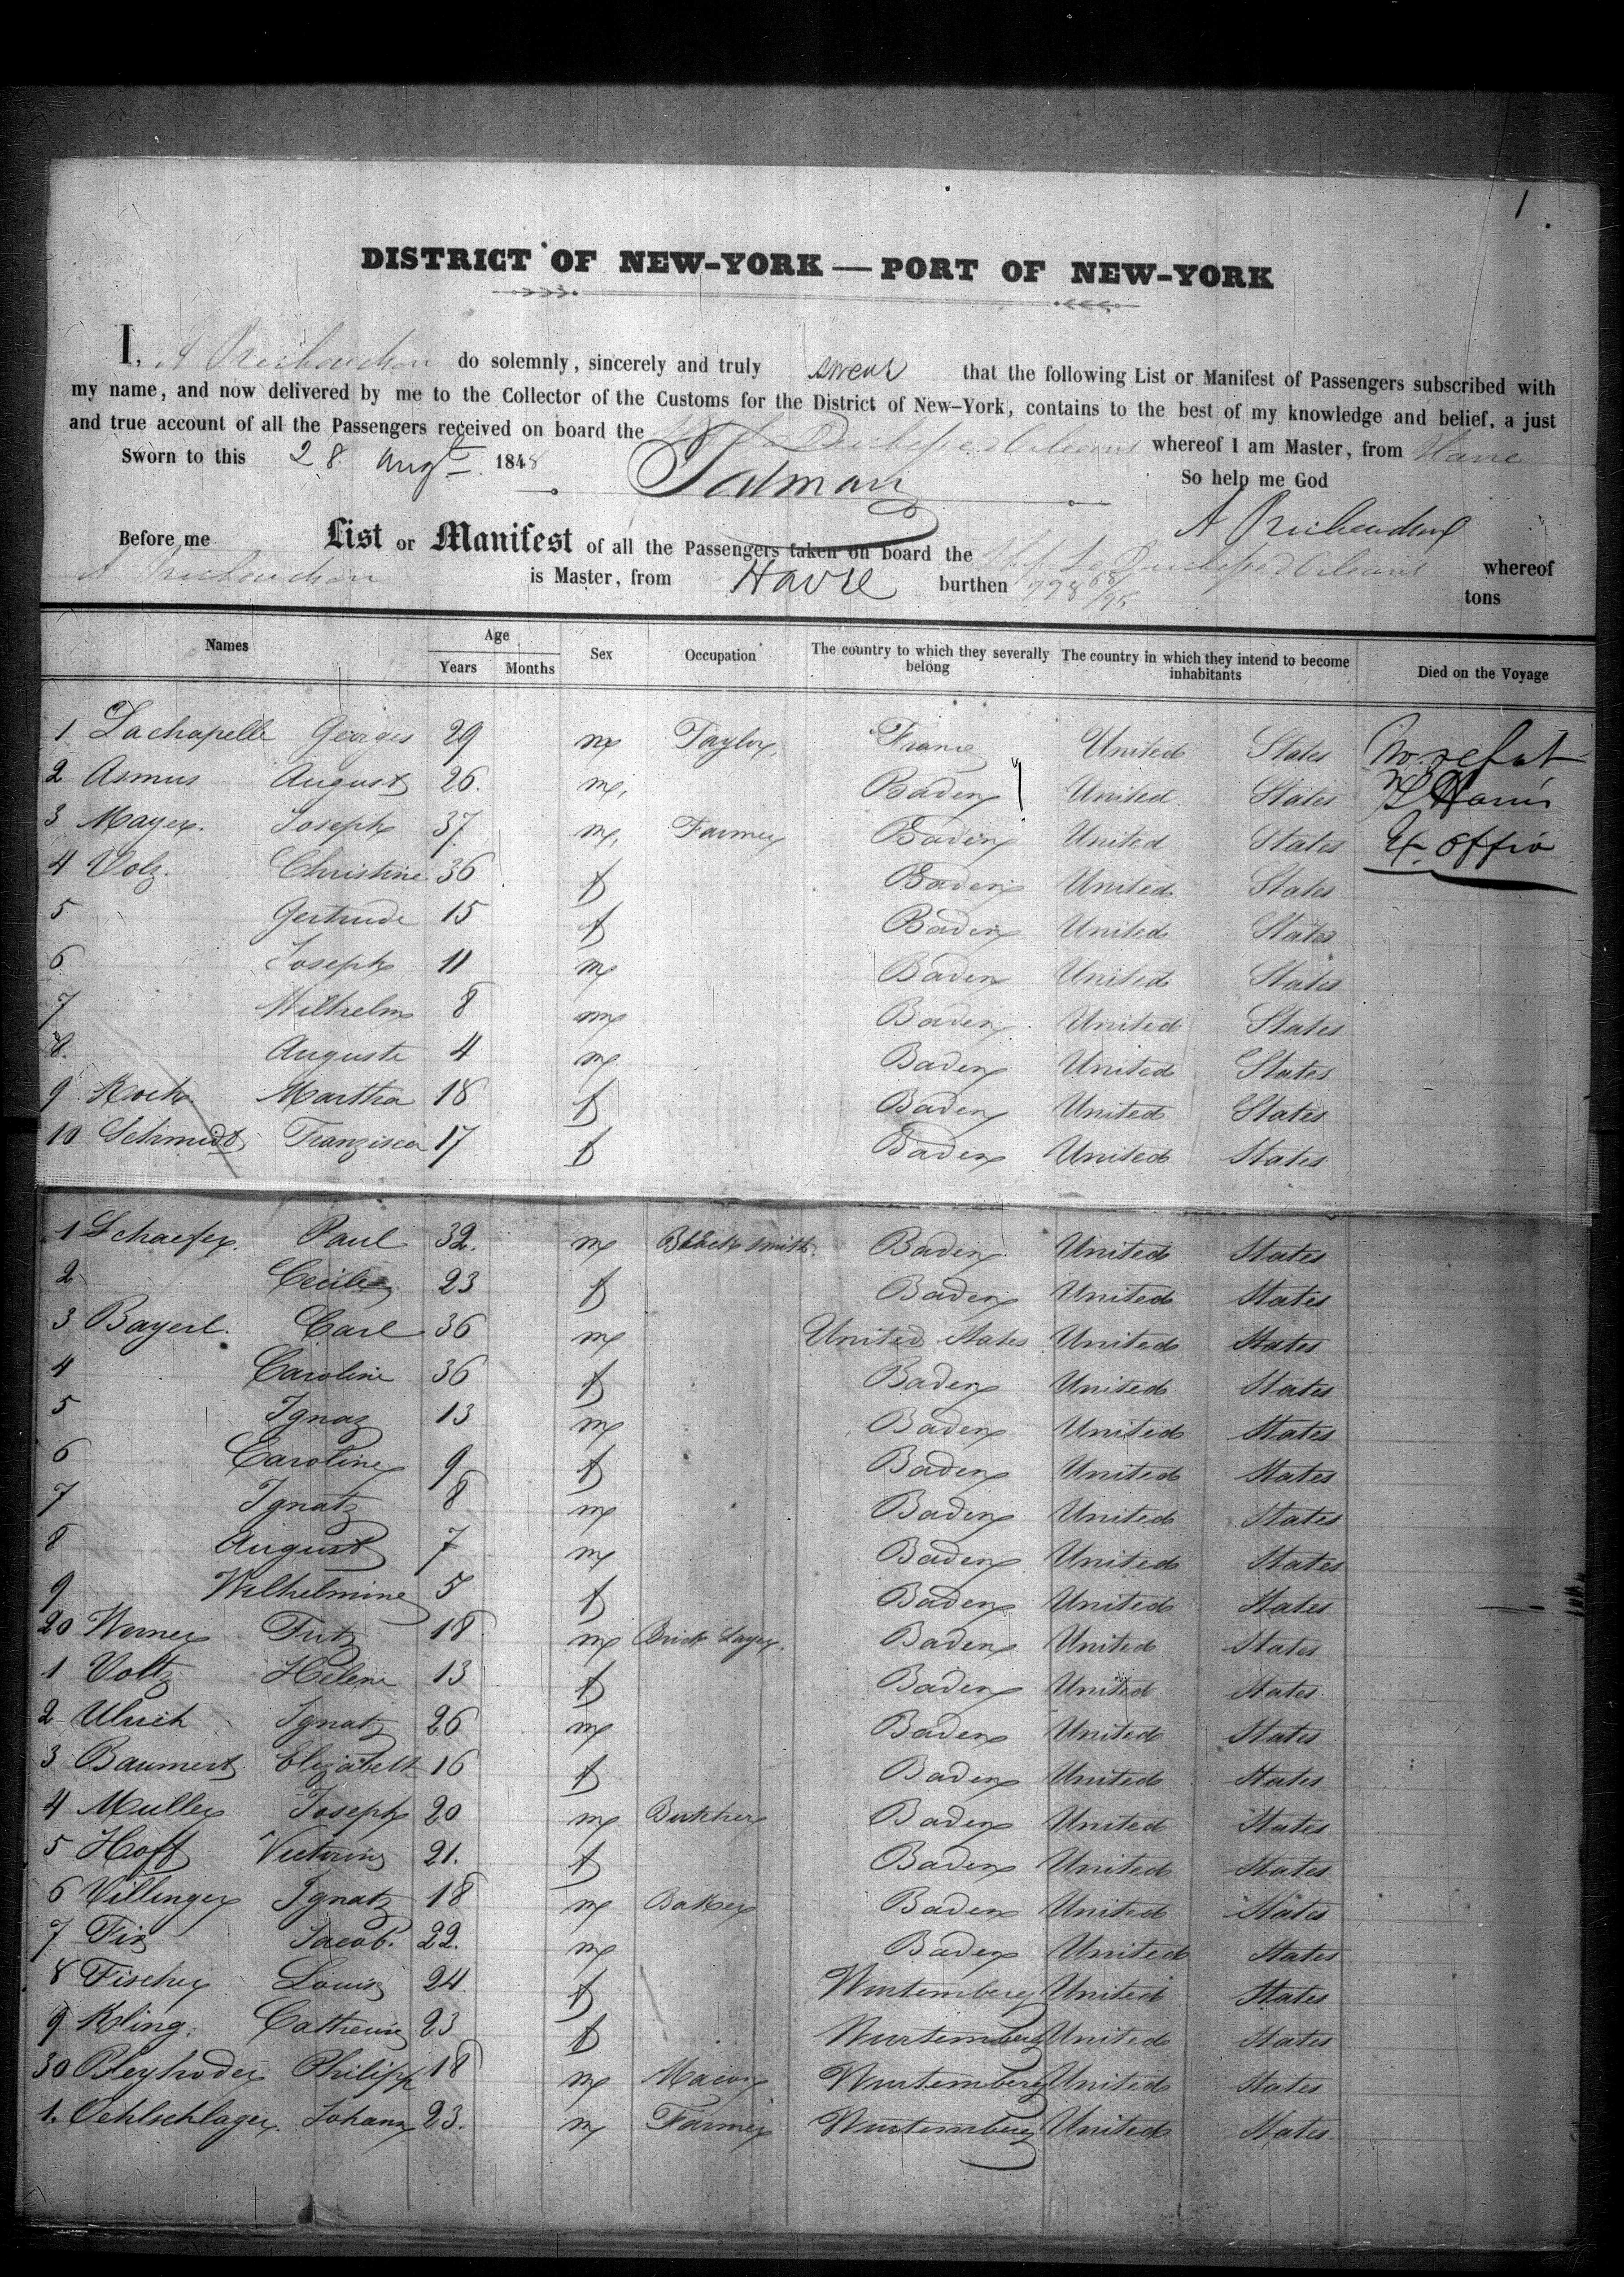 1
DISTRICT OF NEW-YORK — PORT OF NEW-YORK
I, A Richardson do solemnly, sincerely and truly swear that the following List or Manifest of Passengers subscribed with
my name, and now delivered by me to the Collector of the Customs for the District of New-York, contains to the best of my knowledge and belief, a just
and true account of all the Passengers received on board the Duchesse d'Orleans whereof I am Master, from Havre
Sworn to this 28 Augt 1848 So help me God
Talman
A Richardson
Before me List or Manifest of all the Passengers taken on board the Ship La Duchesse d'Orleans whereof
A Richardson is Master, from Havre burthen 798 68/95 tons
Names Age Sex Occupation The country to which they severally belong The country in which they intend to become inhabitants Died on the Voyage
Years Months
1 Lachapelle Georges 29 m Taylor France United States
2 Asmus August 26. m, Baden United States
3 Mayer. Joseph 37 m, Farmer Baden United States Ex offio
4 Volz. Christine 36 f Baden United States
5 Gertrude 15 f Baden United States
6 Joseph 11 m Baden United States
7 Wilhelm 8 m Baden United States
8. Auguste 4 m Baden United States
9 Koch Martha 18 f Baden United States
10 Schmidt Franzisca 17 f Baden United States
1 Schaefer. Paul 32. m Black smith Baden United States
2 Cecile 23 f Baden United States
3 Bayerl. Carl 36 m United States United States
4 Caroline 36 f Baden United States
5 Ignaz 13 m Baden United States
6 Caroline 9 f Baden United States
7 Ignatz 8 m Baden United States
8 August 7 m Baden United States
9 Wilhelmine 5 f Baden United States
20 Werner Fritz 18 m Brick Layer. Baden United States
1 Voltz Helene 13 f Baden United States
2 Ulrich Ignatz 26 m Baden United States
3 Baumert Elizabeth 16 f Baden United States
4 Muller Joseph 20 m Butcher Baden United States
5 Hoff Victorine 21. f Baden United States
6 Villinger Ignatz 18 m Baker Baden United States
7 Fix Jacob. 22. m Baden United States
8 Fischer Louise 24. f Wurtemberg United States
9 Kling. Catherine 23 f Wurtemberg United States
30 Philipp 18 m Macon Wurtemberg United States
1. Oehlschlager. Johann 23. m Farmer Wurtemberg United States